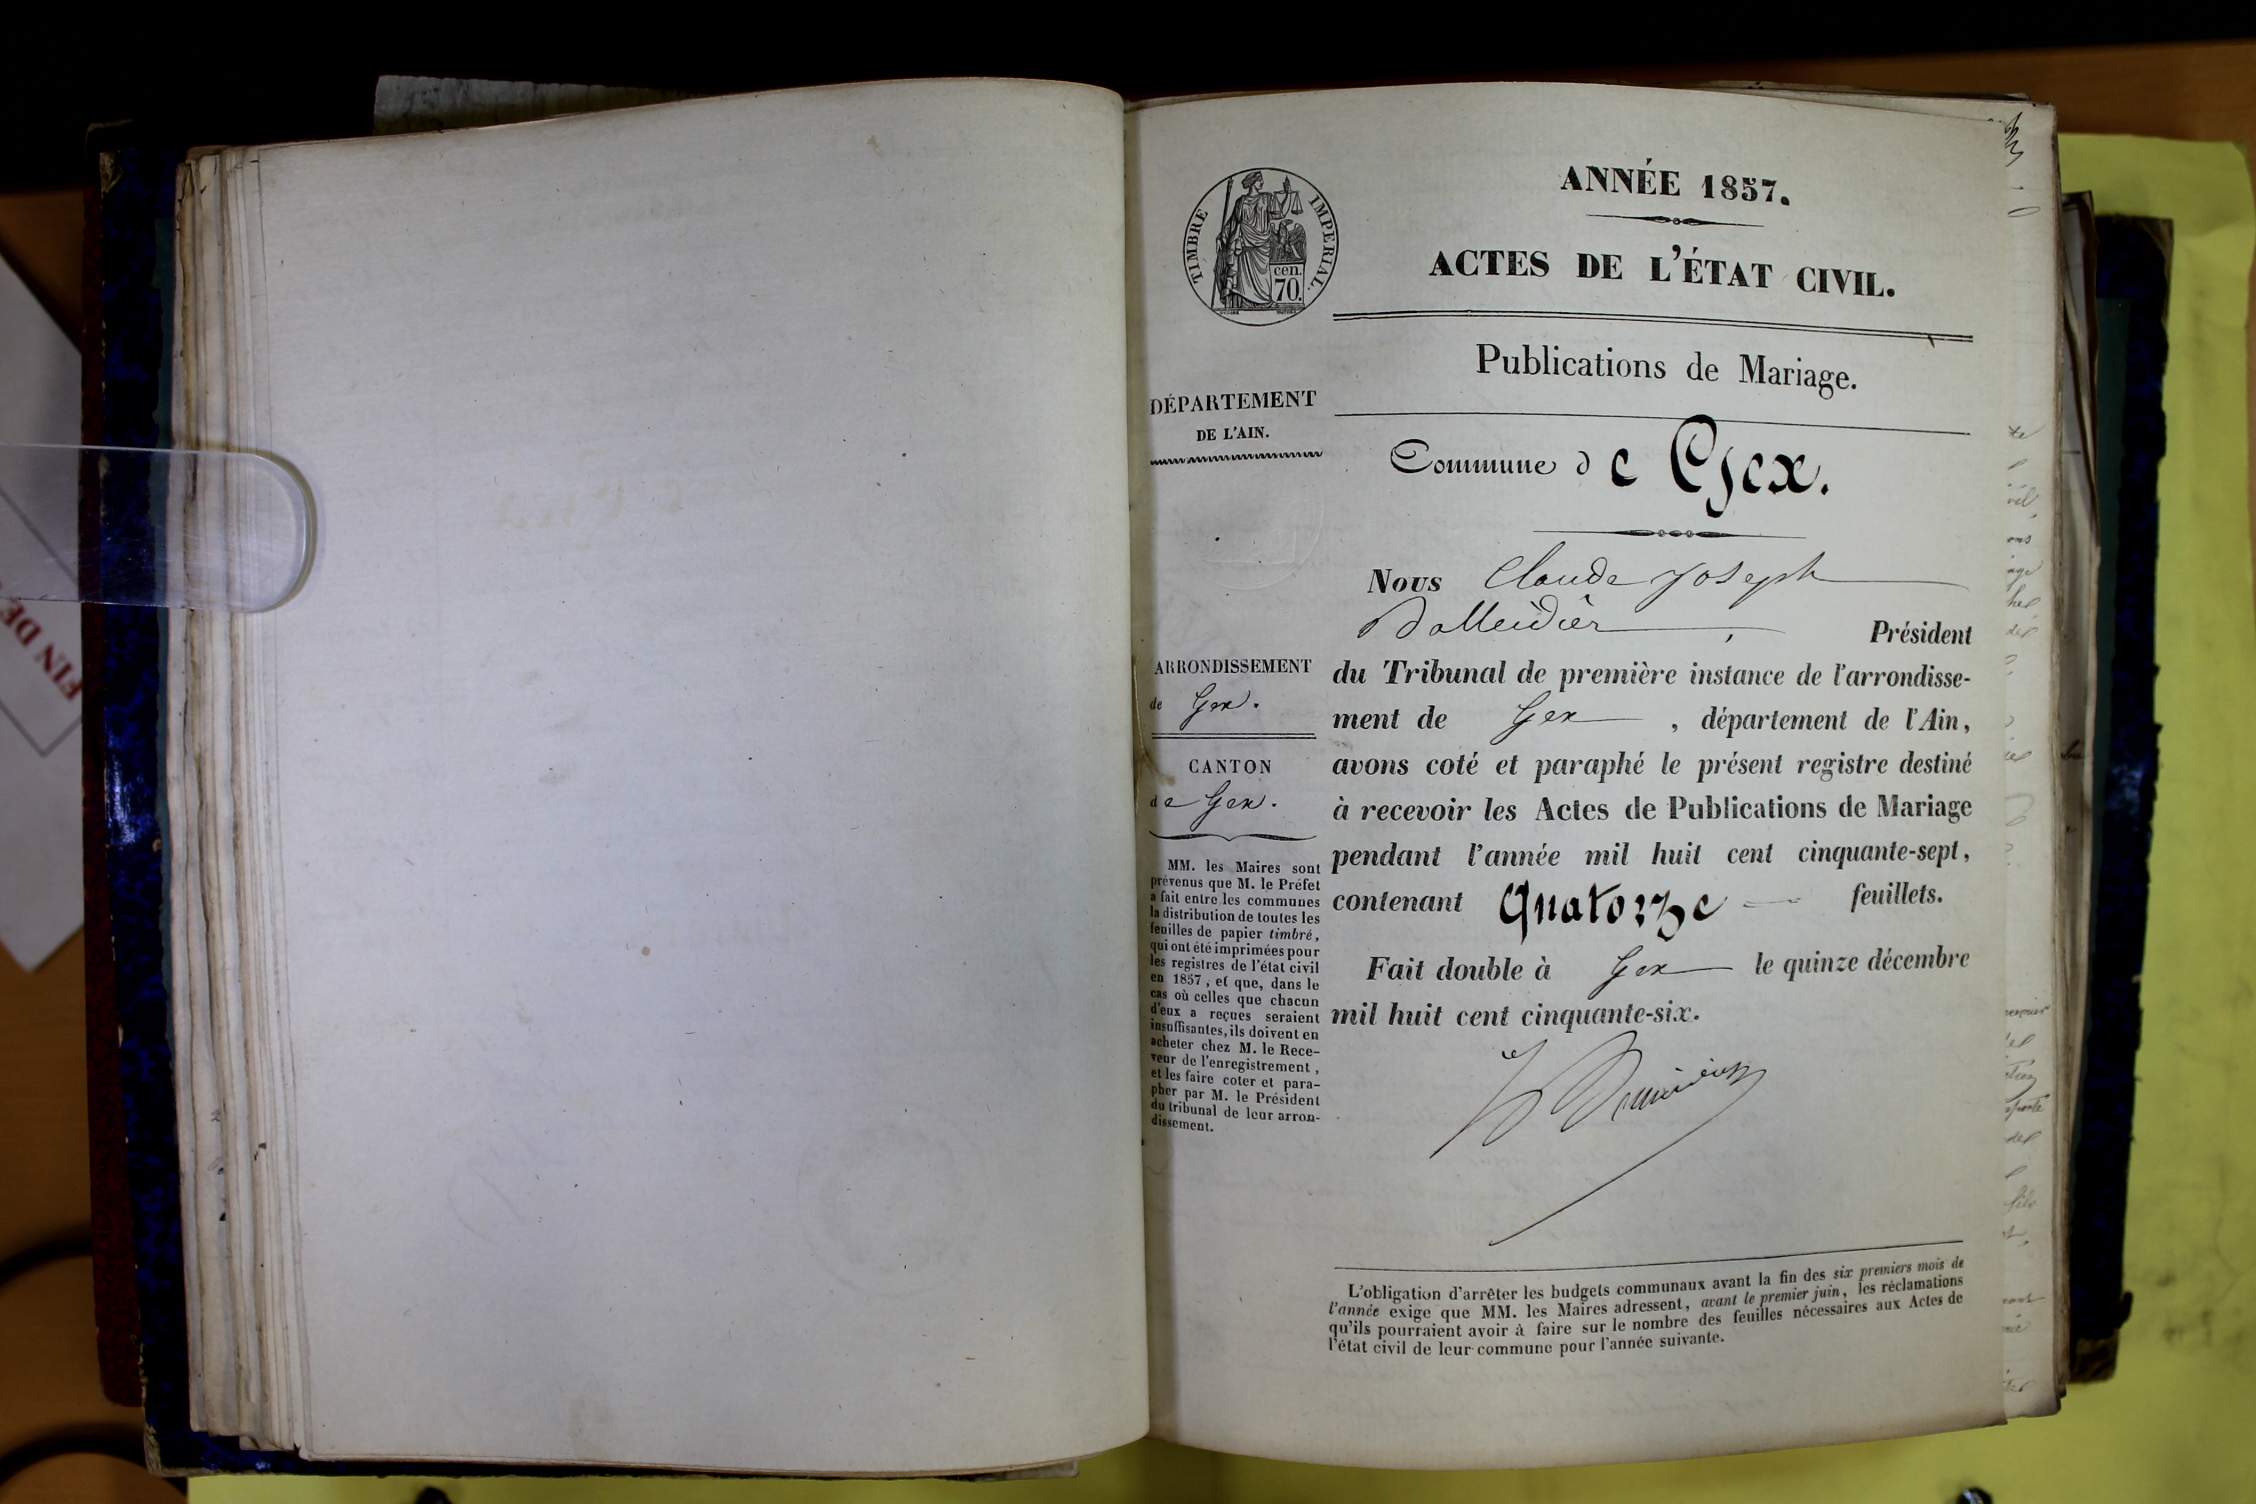 ANNÉE 1857.
ACTES DE L'ÉTAT CIVIL.
TIMBRE IMPERIAL.
cen.
70.
Publications de Mariage.
DÉPARTEMENT
DE L'AIN.
Commune de Gex.
Nous Claude Joseph
Président
ARRONDISSEMENT
de Gex.
CANTON
de Gex.
du Tribunal de première instance de l'arrondisse-
ment de Gex, département de l'Ain,
avons coté et paraphé le présent registre destiné
à recevoir les Actes de Publications de Mariage
pendant l'année mil huit cent cinquante-sept,
contenant Quatorze feuillets.
Fait double à Gex le quinze décembre
mil huit cent cinquante-six.
MM. les Maires sont
prévenus que M. le Préfet
a fait entre les communes
la distribution de toutes les
feuilles de papier timbré,
qui ont été imprimées pour
les registres de l'état civil
en 1857, et que, dans le
cas où celles que chacun
d'eux a reçues seraient
insuffisantes, ils doivent en
acheter chez M. le Rece-
veur de l'enregistrement,
et les faire coter et para-
pher par M. le Président
du tribunal de leur arron-
dissement.
L'obligation d'arrêter les budgets communaux avant la fin des six premiers mois de
l'année exige que MM. les Maires adressent, avant le premier juin, les réclamations
qu'ils pourraient avoir à faire sur le nombre des feuilles nécessaires aux Actes de
l'état civil de leur commune pour l'année suivante.
FIN DE